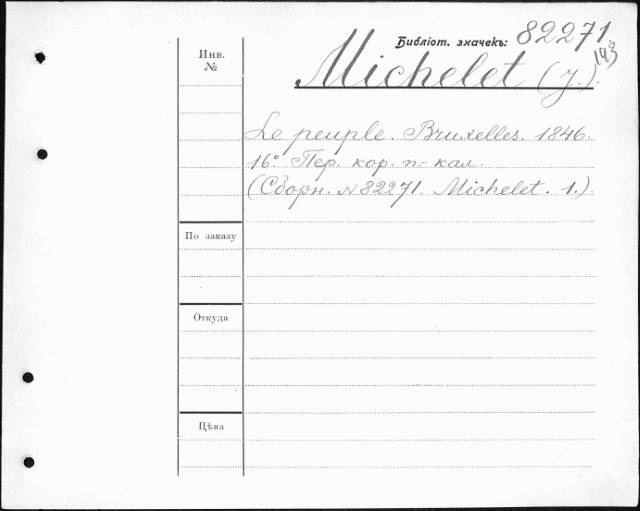 Библіот. значекъ: 82271
193
Инв.
№
Michelet (J.)
Le peuple. Bruxelles. 1846.
16° Пер. кор. п.-кал.
(Сборн. N 82271. Michelet. 1.)
По заказу
Откуда
Цѣна